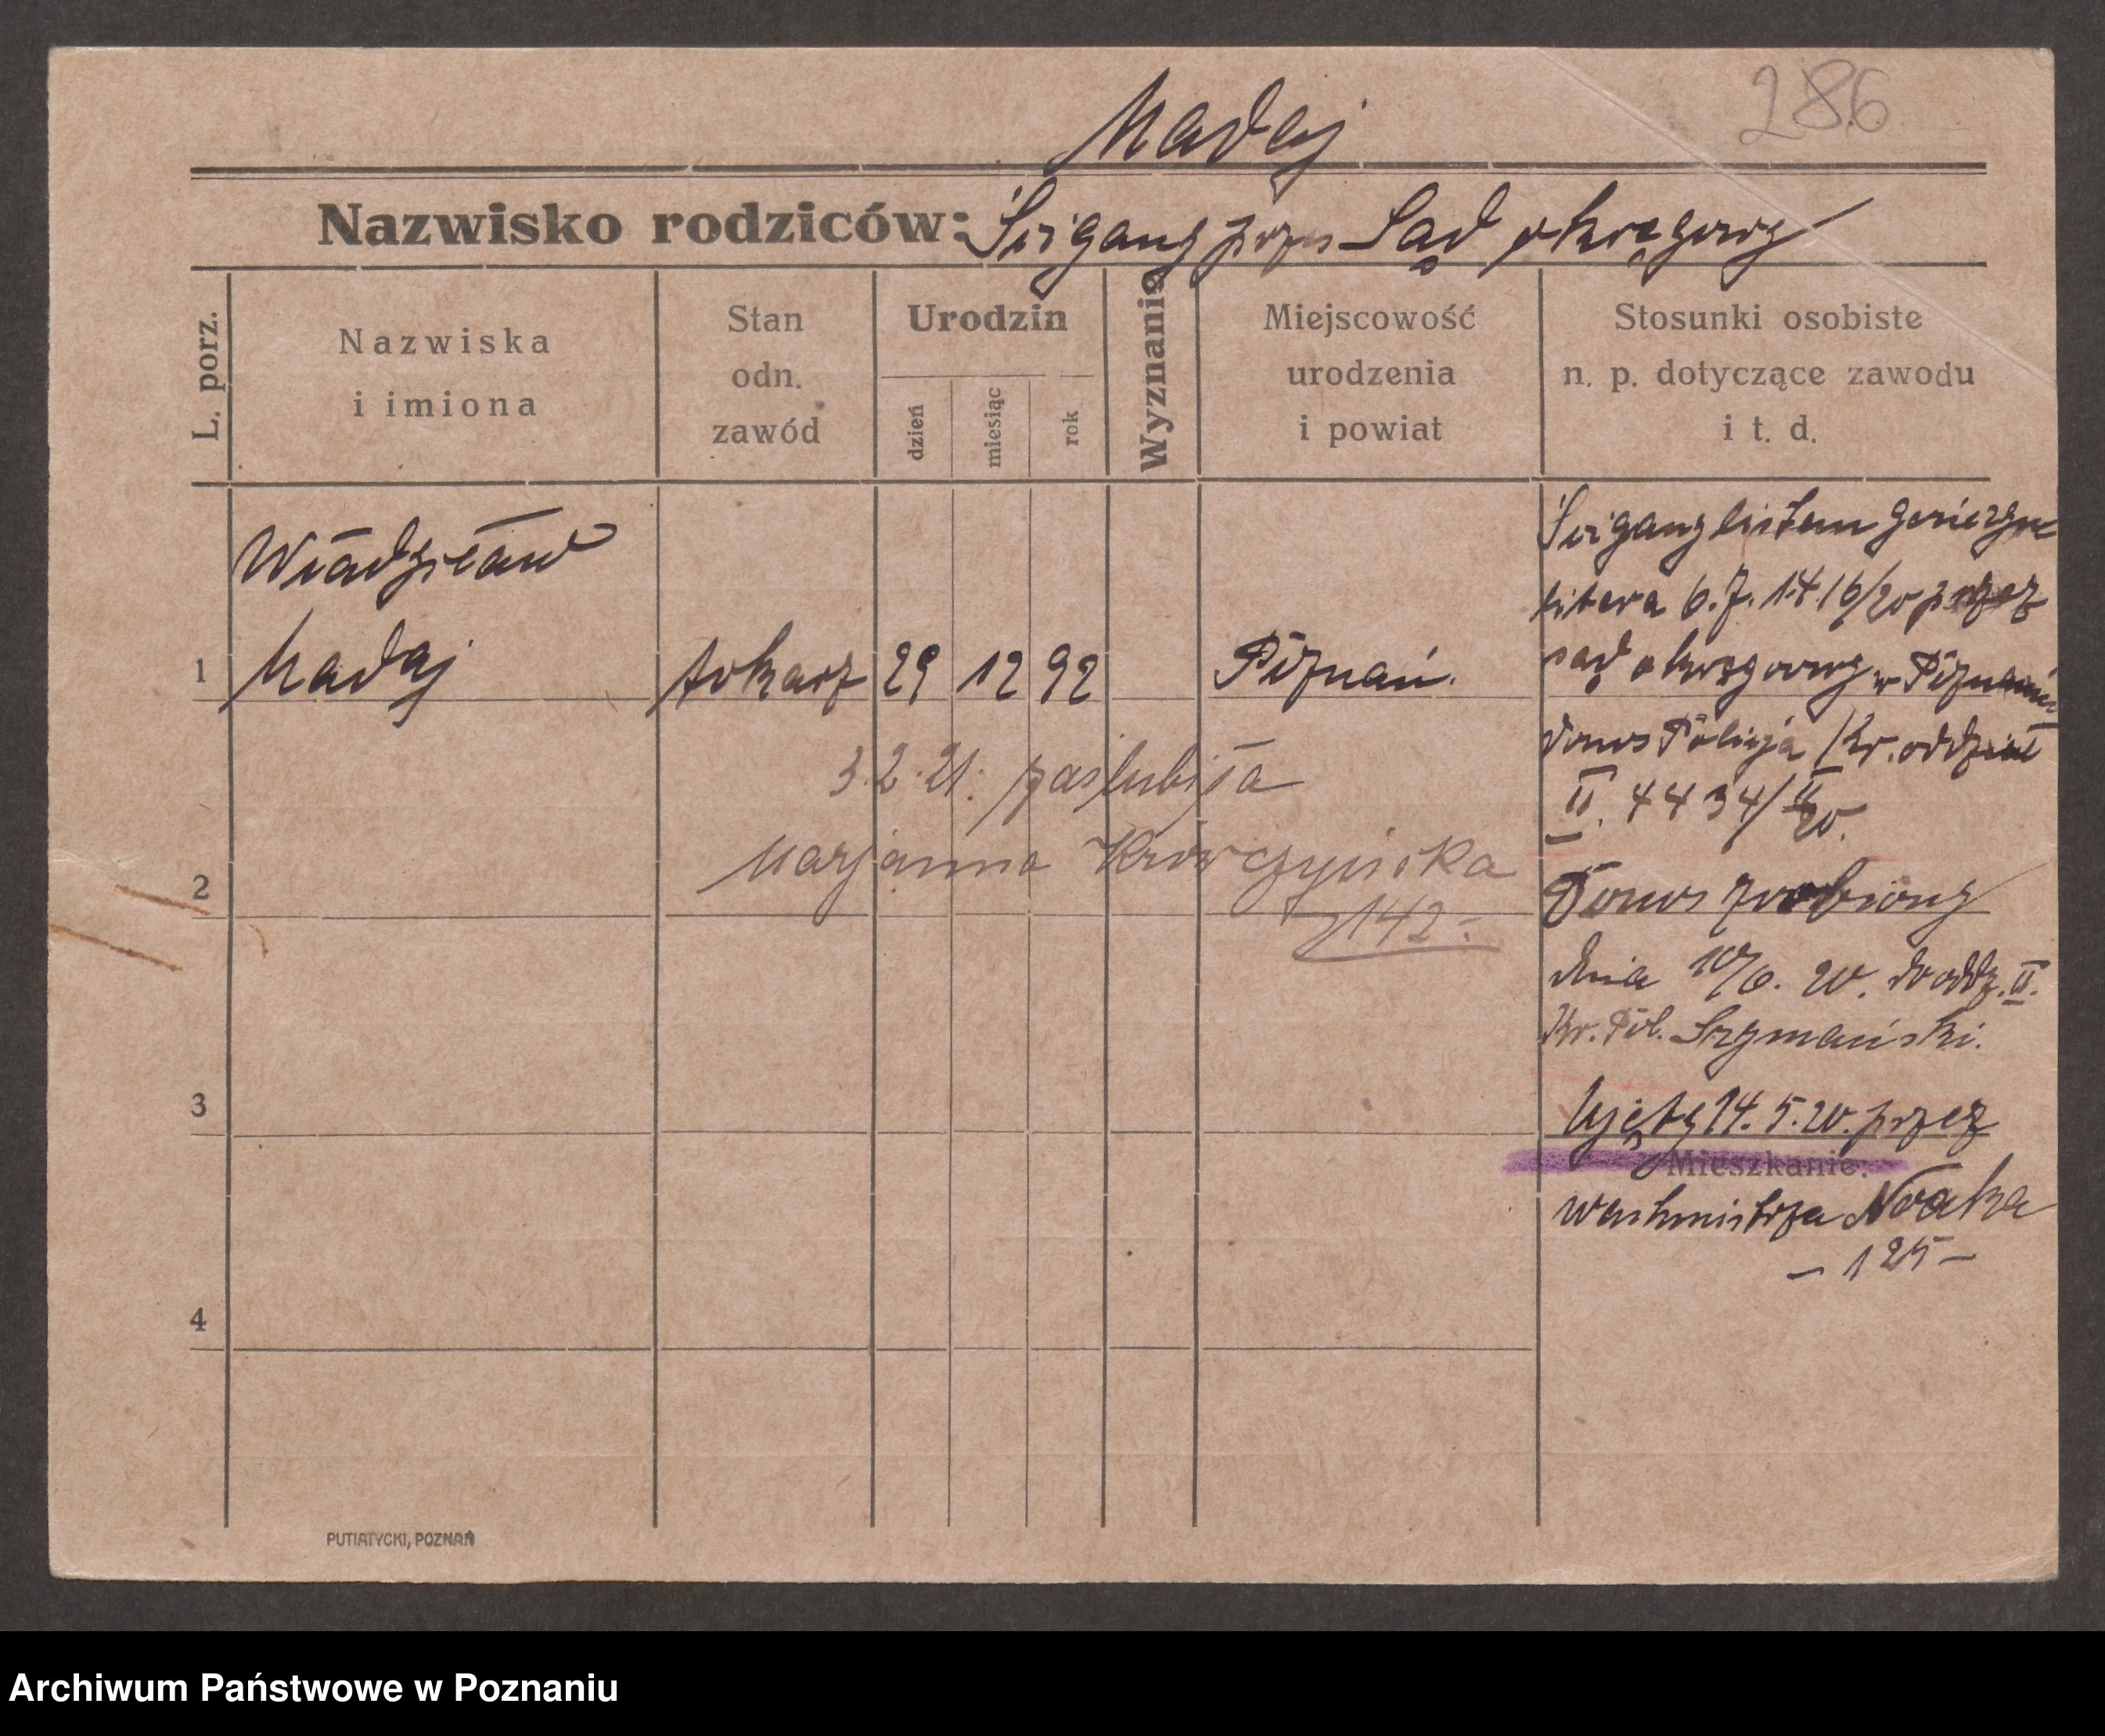 286
Madaj
Nazwisko rodziców: Ścigany przez Sąd okręgowy
L. porz.
Nazwiska
i imiona
Stan
odn.
zawód
Urodzin
dzień
miesiąc
rok
Wyznanie
Miejscowość
urodzenia
i powiat
Stosunki osobiste
n. p. dotyczące zawodu
i t. d.
Władysław
1 Madaj tokarz 29 12 92 Poznań.
Ścigany listem gończym
litera 6. J. 1416/20 przez
sąd okręgowy w Poznaniu
donos Policja Kr. oddział
II. 4434/II 20.
3.2.21. zaślubiła
Marjanna Krówczyńska
142.-
2
Donos zrobiony
dnia 10/6. 20. do oddz. II.
Kr. Pol. Szymański.
3
Ujęty 14. 5. 20. przez
Mieszkanie:
wachmistrza Nvaka
- 125 -
4
PUTIATYCKI, POZNAŃ
Archiwum Państwowe w Poznaniu